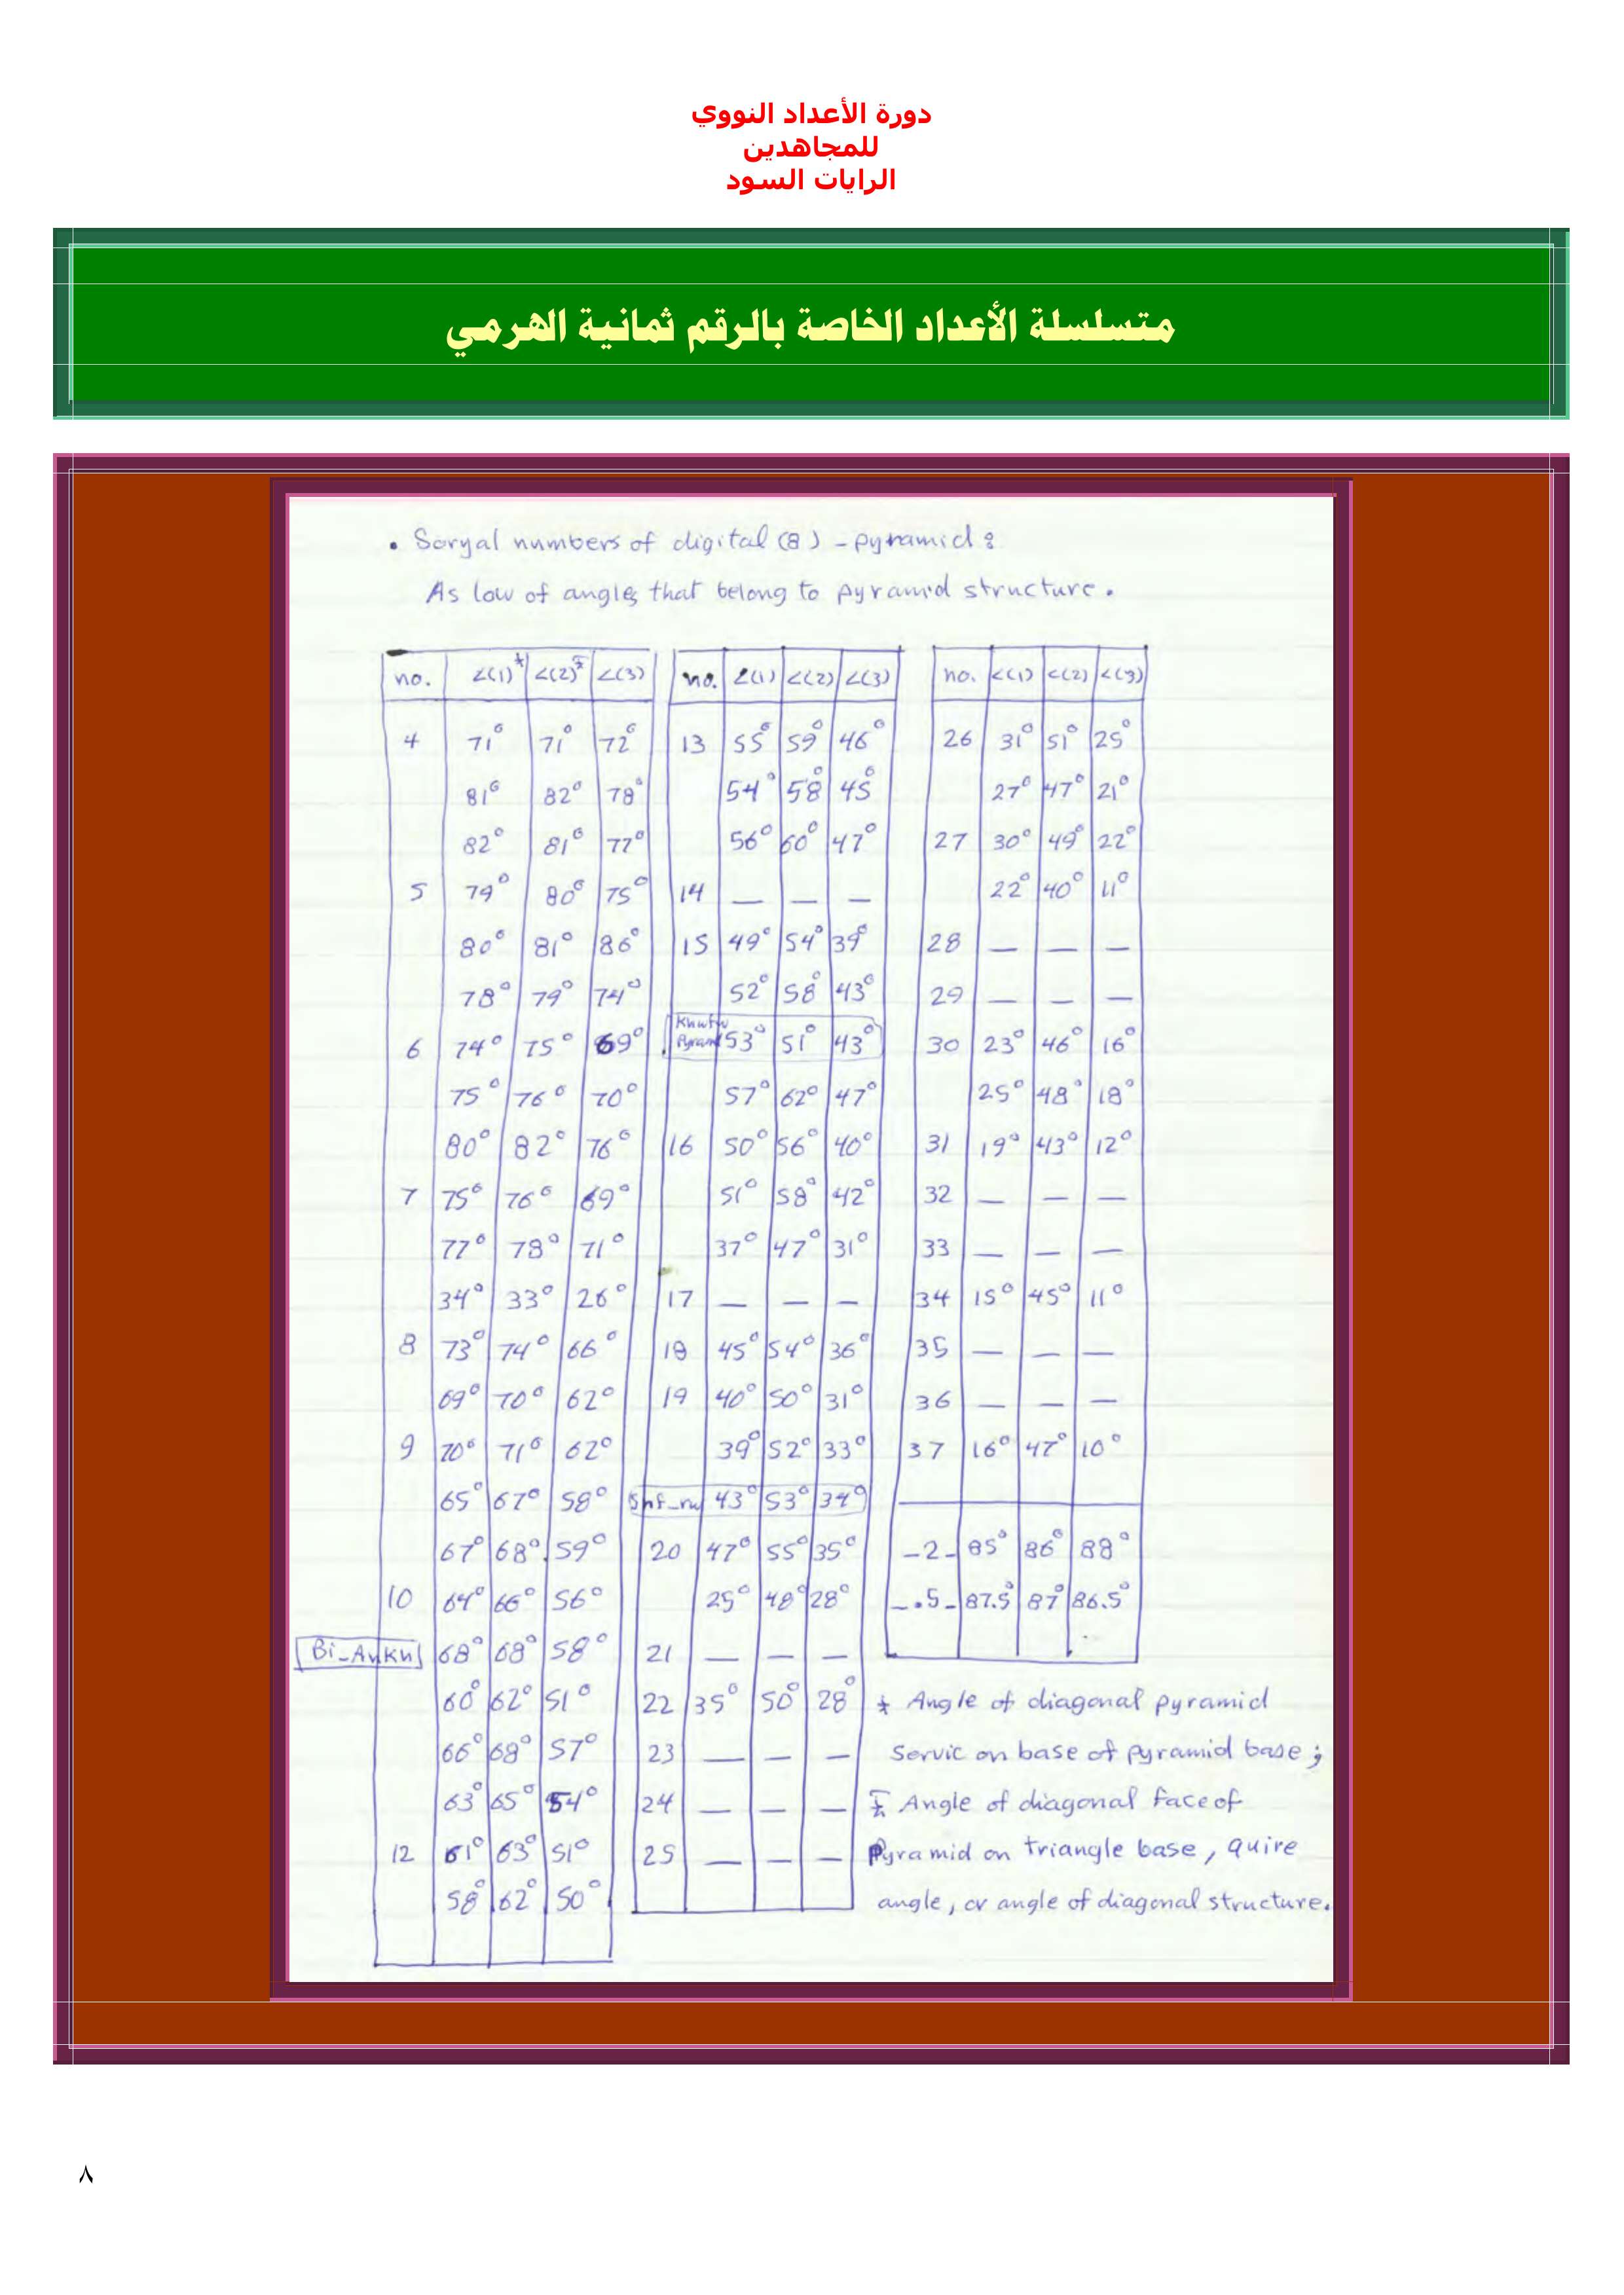 دورة الأعداد النووي
للمجاهدين
الرايات السود
متسلسلة الأعداد الخاصة بالرقم ثمانية الهرمي
• Soryal numbers of digital (8) - pyramid :
As low of angles that belong to pyramid structure.
no. ∠(1) ∠(2) ∠(3)
4 71° 71° 72°
81° 82° 78°
82° 81° 77°
5 79° 80° 75°
80° 81° 86°
78° 79° 74°
6 74° 75° 69°
75° 76° 70°
80° 82° 76°
7 75° 76° 69°
77° 78° 71°
34° 33° 26°
8 73° 74° 66°
69° 70° 62°
9 70° 71° 62°
65° 67° 58°
67° 68° 59°
10 64° 66° 56°
Bi_Ankh 68° 68° 58°
60° 62° 51°
66° 68° 57°
63° 65° 54°
12 61° 63° 51°
58° 62° 50°
no. ∠(1) ∠(2) ∠(3)
13 55° 59° 46°
54° 58° 45°
56° 60° 47°
14 — — —
15 49° 54° 39°
52° 58° 43°
Khwfw Pyram 53° 51° 43°
57° 62° 47°
16 50° 56° 40°
51° 58° 42°
37° 47° 31°
17 — — —
18 45° 54° 36°
19 40° 50° 31°
39° 52° 33°
Snf_rw 43° 53° 34°
20 47° 55° 35°
25° 48° 28°
21 — — —
22 35° 50° 28°
23 — — —
24 — — —
25 — — —
no. ∠(1) ∠(2) ∠(3)
26 31° 51° 25°
27° 47° 21°
27 30° 49° 22°
22° 40° 11°
28 — — —
29 — — —
30 23° 46° 16°
25° 48° 18°
31 19° 43° 12°
32 — — —
33 — — —
34 15° 45° 11°
35 — — —
36 — — —
37 16° 47° 10°
_2_ 85° 86° 88°
_.5_ 87.5° 87° 86.5°
Angle of diagonal pyramid
servic on base of pyramid base ;
Angle of diagonal face of
Pyramid on triangle base, quire
angle, or angle of diagonal structure.
٨